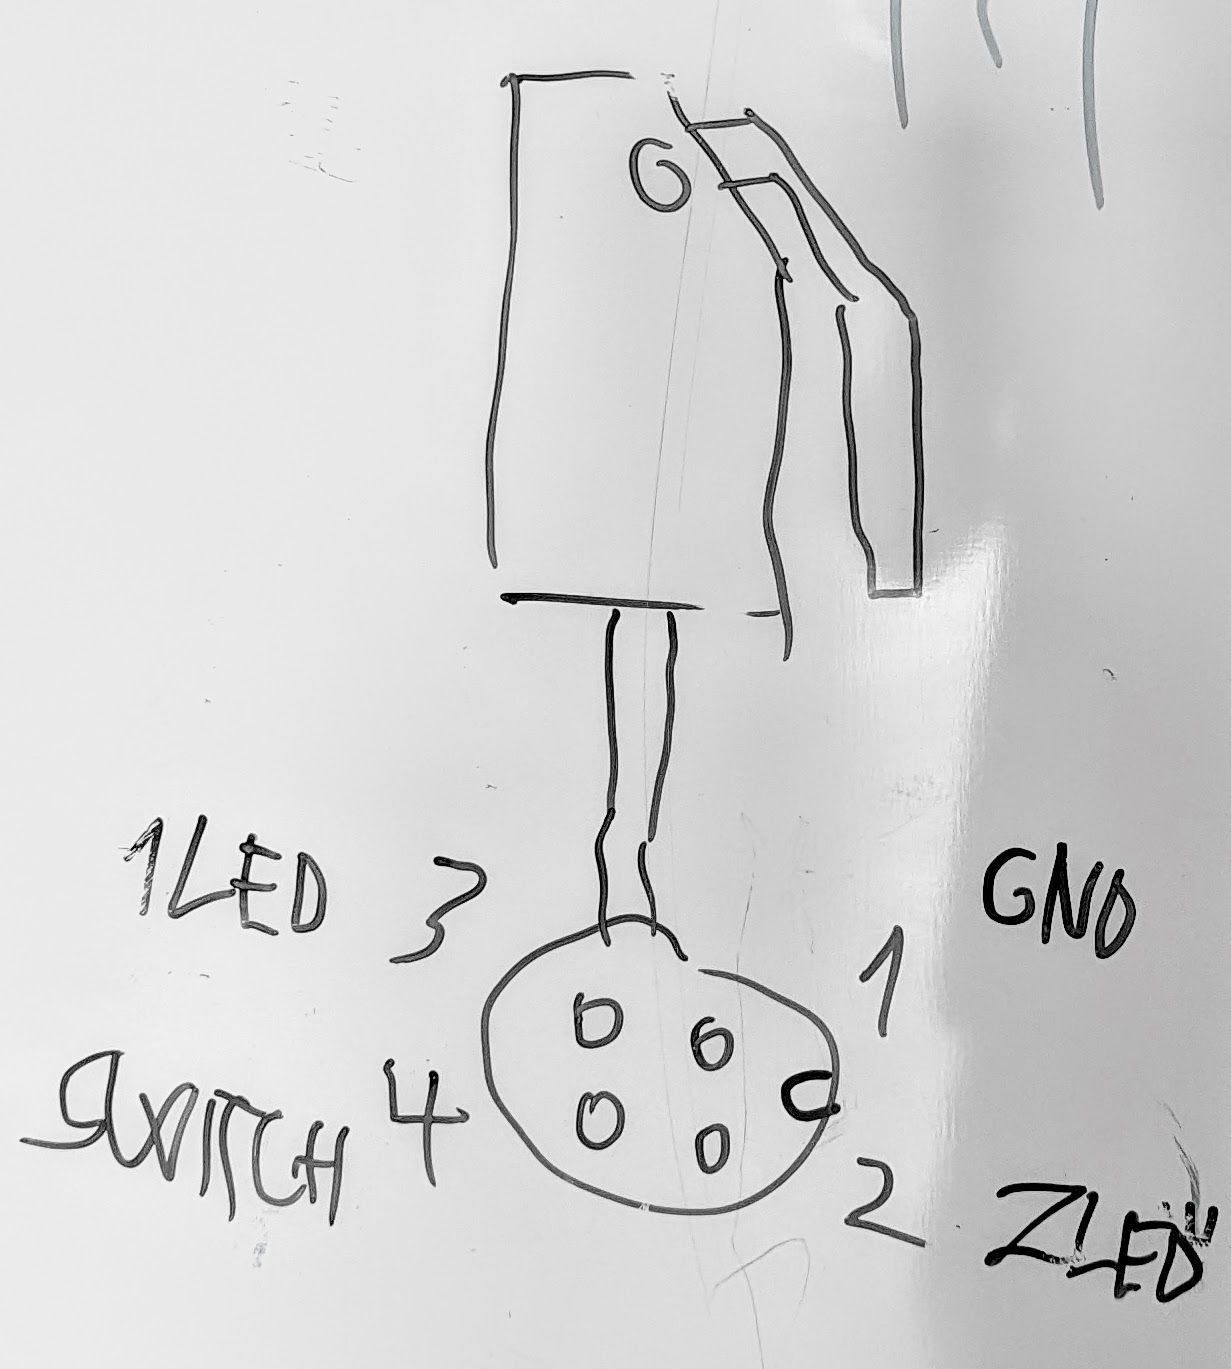 6
1LED 3
GND
1
SWITCH 4
2
2LED